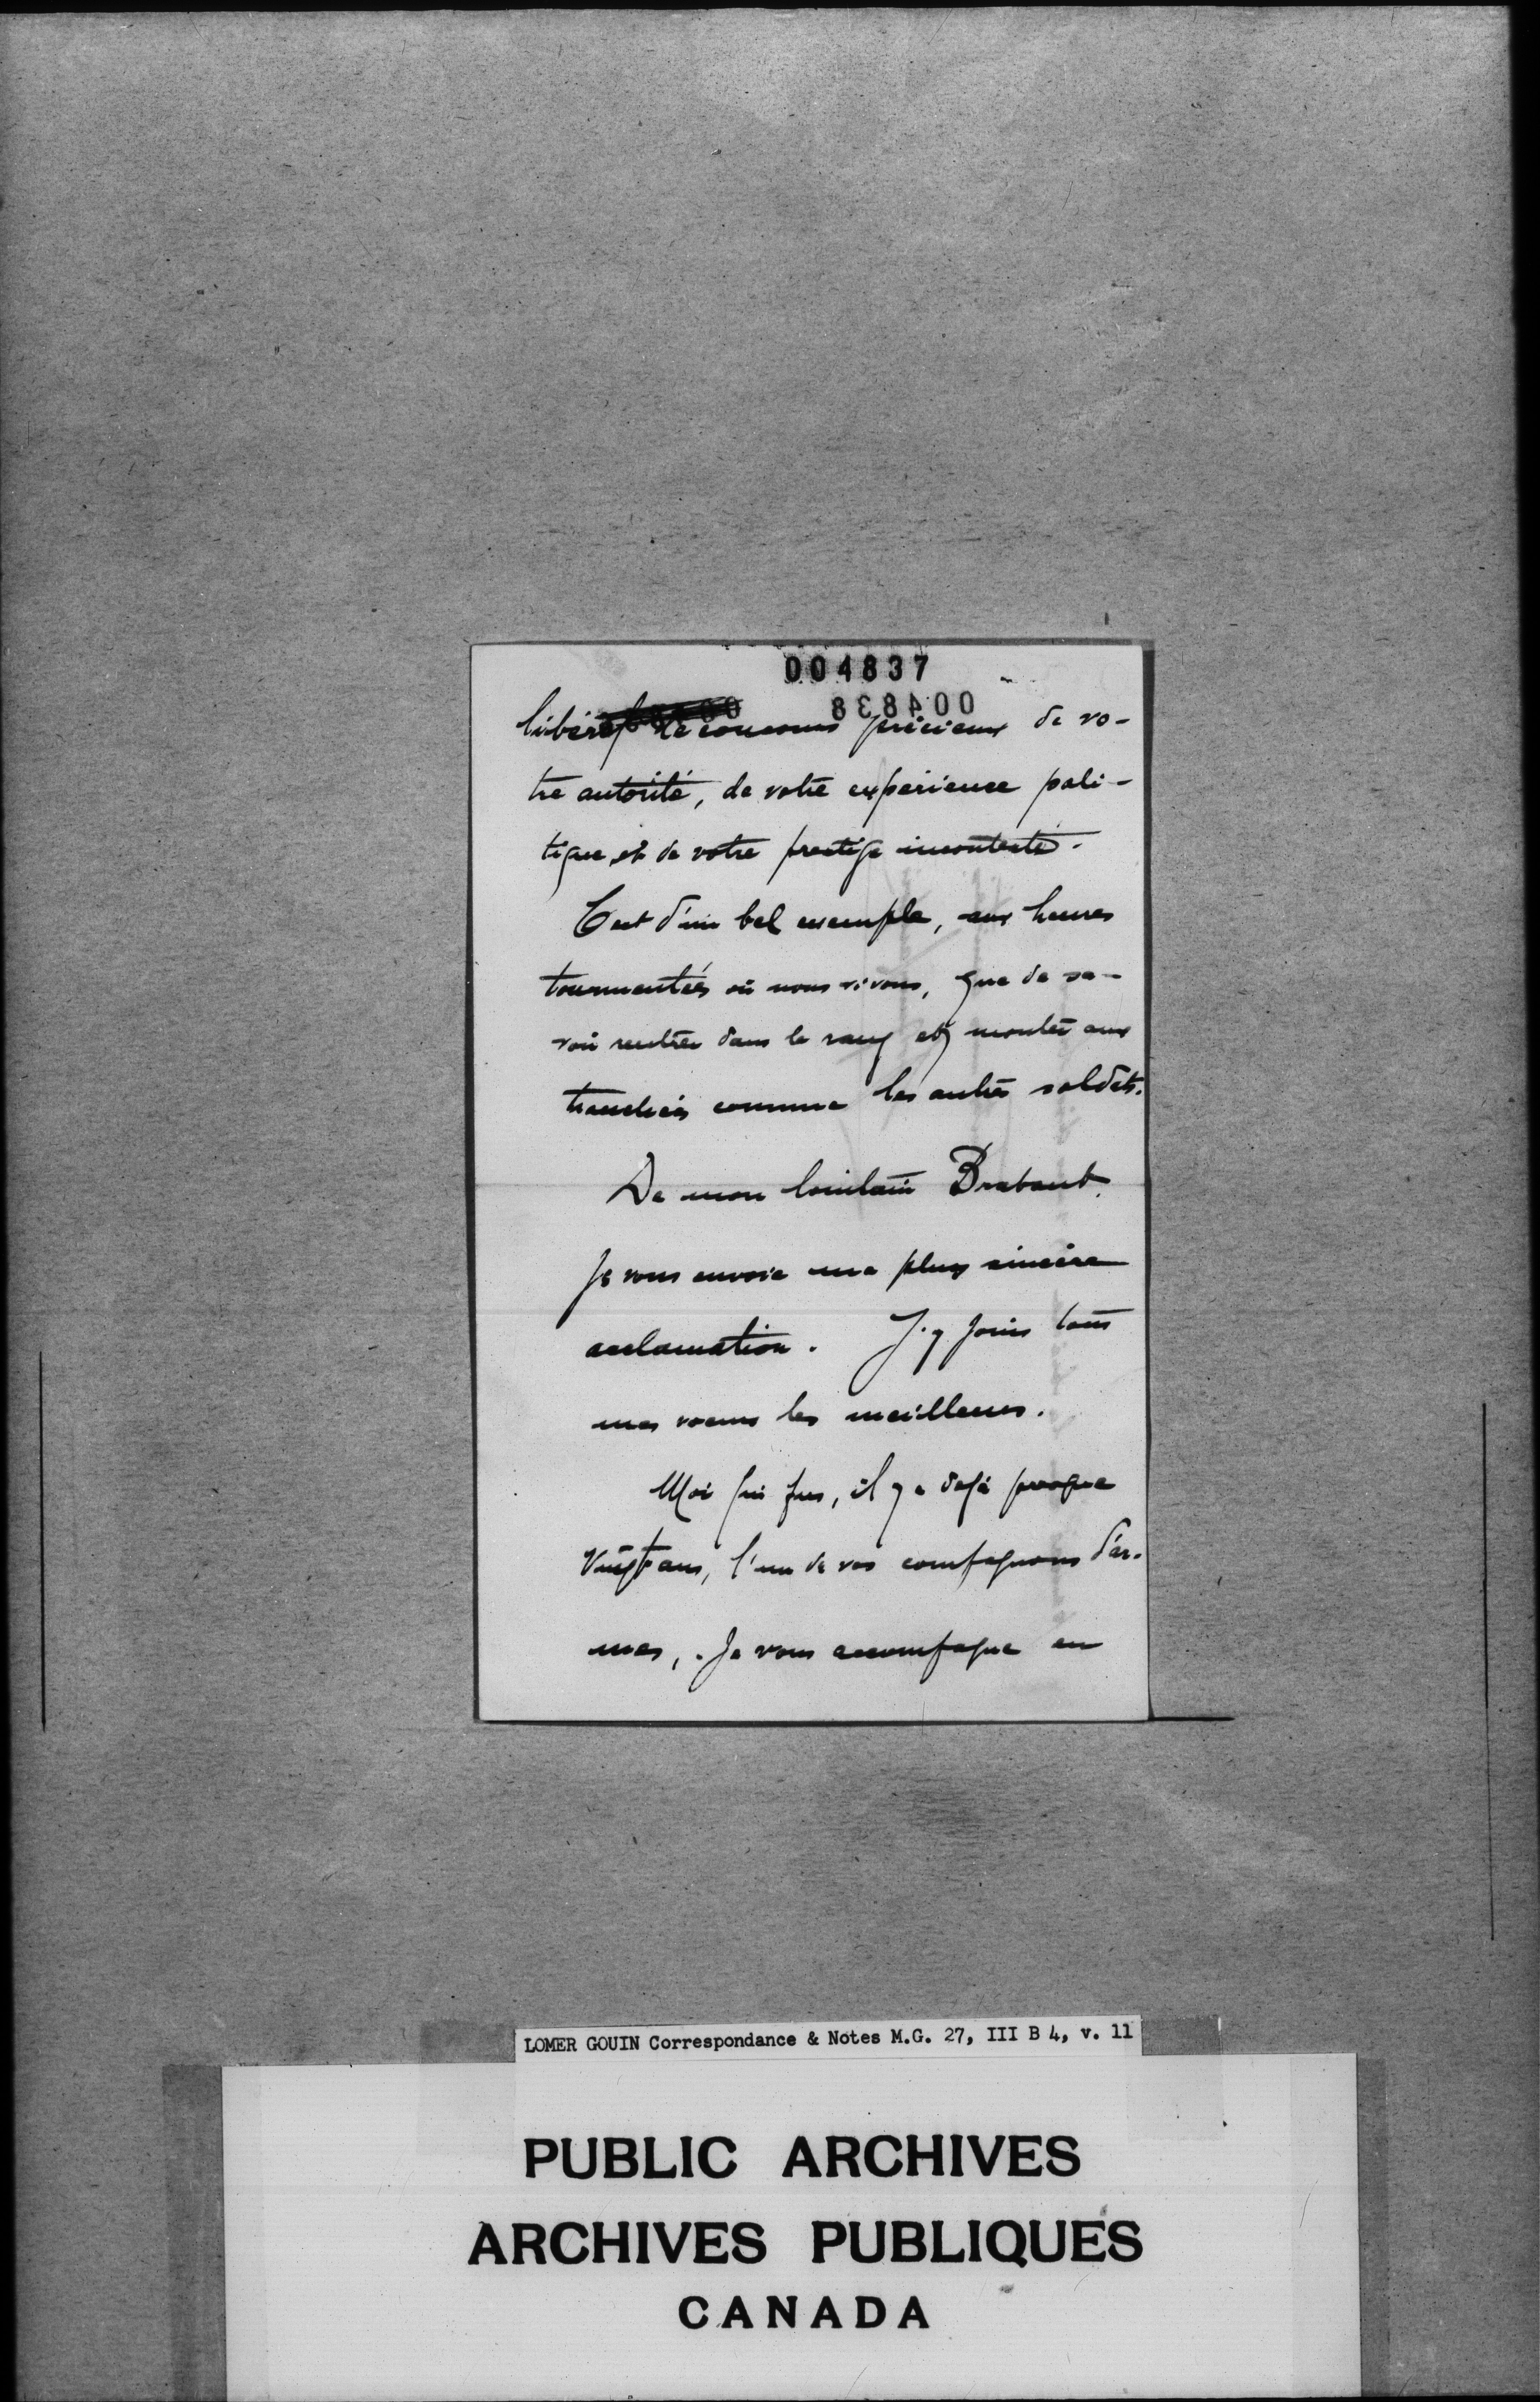 004837
004838
libéral le concours précieux de vo-
tre autorité, de votre expérience poli-
tique, et de votre prestige incontesté.
C'est d'un bel exemple, aux heures
tourmentées où nous vivons, que de sa-
voir rentrer dans le rang et monter aux
tranchées comme les autres soldats.
De mon lointain Brabant,
je vous envoie ma plus sincère
acclamation. J'y joins tous
mes voeux les meilleurs.
Moi qui fus, il y a déjà presque
vingt ans, l'un de vos compagnons d'ar-
mes, je vous accompagne en
LOMER GOUIN Correspondance & Notes M.G. 27, III B 4, v. 11
PUBLIC ARCHIVES
ARCHIVES PUBLIQUES
CANADA